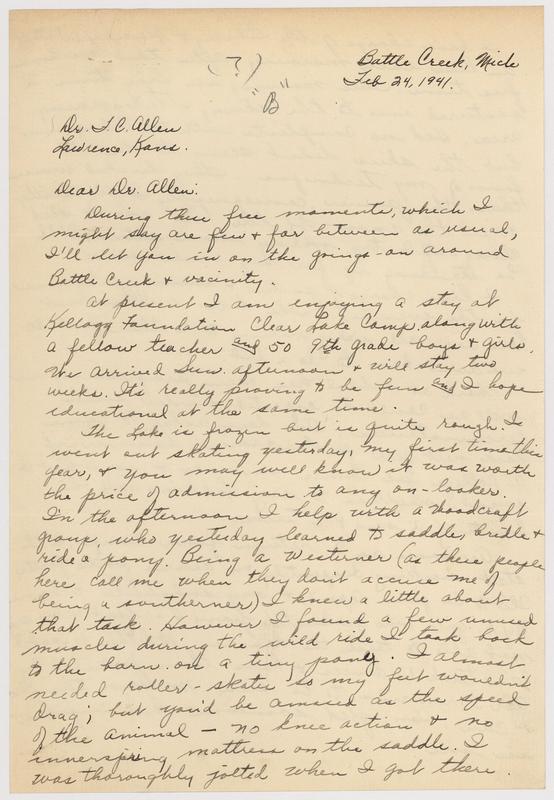 Battle Creek, Mich
Feb 24, 1941.
(?)
"B"
Dr. F. C. Allen
Lawrence, Kans.
Dear Dr. Allen:
During these free moments, which I
might say are few & far between as usual,
I'll let you in on the goings-on around
Battle Creek & vacinity.
At present I am enjoying a stay at
Kellogg Foundation Clear Lake Camp, along with
a fellow teacher and 50 9th grade boys & girls.
We arrived Sun. afternoon & will stay two
weeks. It's really proving to be fun and I hope
educational at the same time.
The Lake is frozen but is quite rough. I
went out skating yesterday, my first time this
year, & you may well know it was worth
the price of admission to any on-looker.
In the afternoon I help with a Woodcraft
group, who yesterday learned to saddle, bridle &
ride a pony. Being a Westerner (as these people
here call me when they don't accuse me of
being a southerner) I knew a little about
that task. However I found a few unused
muscles during the wild ride I took back
to the barn on a tiny pony. I almost
needed roller-skates so my feet wouldn't
drag; but you'd be amused as the speed
of the animal — no knee action & no
innerspring mattress on the saddle. I
was thoroughly jolted when I got there.